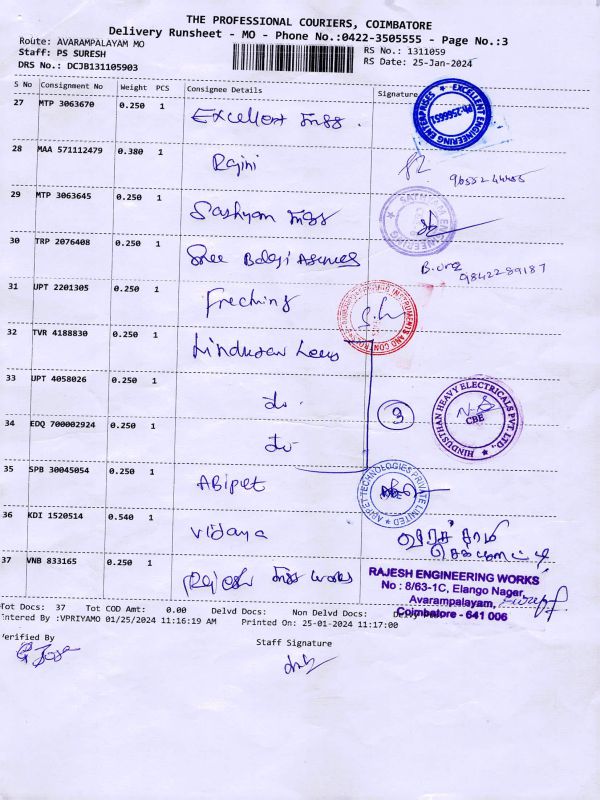 THE PROFESSIONAL COURIERS, COIMBATORE
Delivery Runsheet - MO - Phone No.:0422-3505555 - Page No.:3
Route: AVARAMPALAYAM MO
Staff: PS SURESH
DRS No.: DCJB131105903
RS No.: 1311059
RS Date: 25-Jan-2024
S No Consignment No Weight PCS Consignee Details Signature
27 MTP 3063670 0.250 1 Excellent Engg.
EXCELLENT ENGINEERING ENTERPRISES
Ph:2566651
28 MAA 571112479 0.380 1 Rajini
29 MTP 3063645 0.250 1 Engg
ENGINEERING
30 TRP 2076408 0.250 1 Shree Balaji Agencies
9842289187
31 UPT 2201305 0.250 1
INSTRUMENTS AND CONTROLS
32 TVR 4188830 0.250 1
33 UPT 4058026 0.250 1 do.
3
HINDUSTHAN HEAVY ELECTRICALS PVT. LTD.,
CBE
34 EDQ 700002924 0.250 1 do
35 SPB 30045054 0.250 1 ABipet
ABIPET TECHNOLOGIES PRIVATE LIMITED
36 KDI 1520514 0.540 1 Vidaya
37 VNB 833165 0.250 1 Rajesh Engg Works
RAJESH ENGINEERING WORKS
No : 8/63-1C, Elango Nagar,
Avarampalayam,
Coimbatore - 641 006
Tot Docs: 37 Tot COD Amt: 0.00 Delvd Docs: Non Delvd Docs:
Entered By :VPRIYAMO 01/25/2024 11:16:19 AM Printed On: 25-01-2024 11:17:00
Verified By
Staff Signature